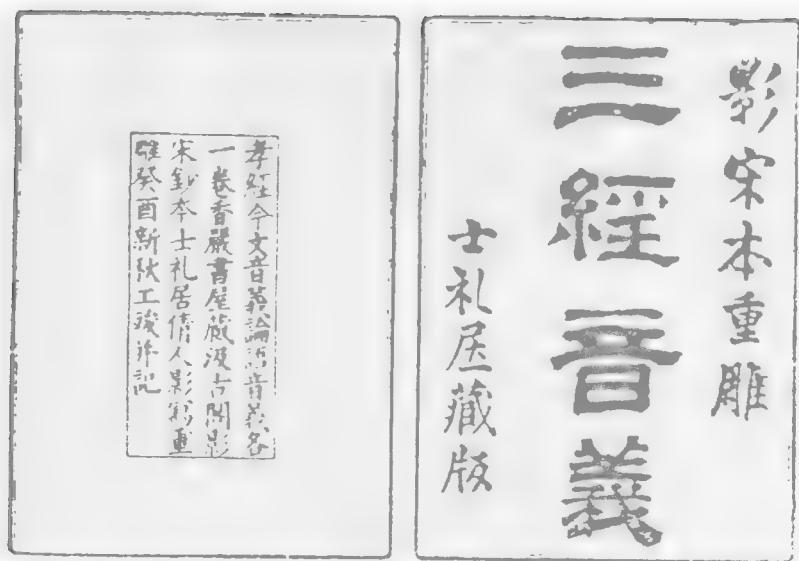 影宋本重雕
三經音義
士礼居藏版
孝經今文音義論語音義各
一卷香嚴書屋藏汲古閣影
宋鈔本士礼居倩人影寫重
雕癸酉新秋工竣并記